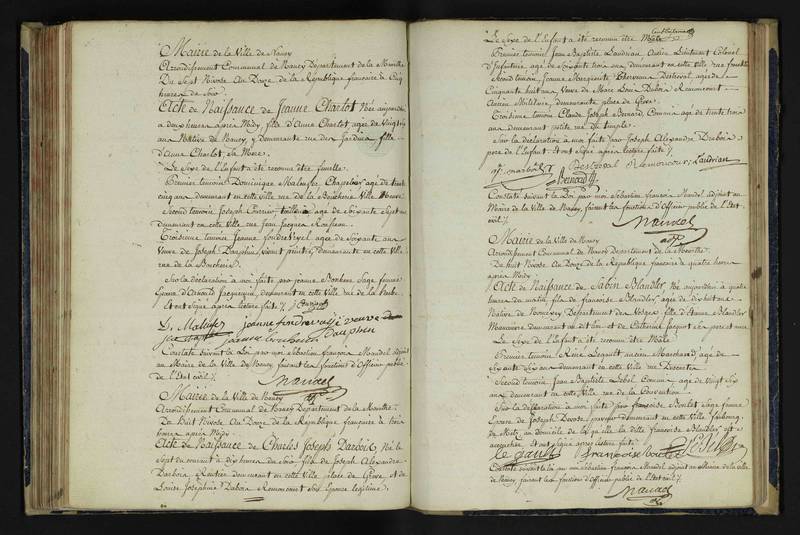 Mairie de la Ville de Nancy
Arrondissement Communal de Nancy Departement de la Meurthe
Du Sept Nivose au Douze de la République française à Cinq
heures de Soir
Acte de Naissance de Jeanne Charlot Née aujourd'hui
à deux heures après Midy, fille d'Anne Charlot agée de vingt
ans Native de Nancy y demeurante rue des Jardins, fille
d'Anne Charlot, sa Mere.
Le Sexe de l'Enfant a été reconnu être femelle.
Premier temoin Dominique Chapelier agé de trente
cinq ans demeurant en cette ville rue de la Boucherie Ville Neuve
Second temoin Joseph agé de Soixante Sept ans
demeurant en cette Ville rue Jean Jacques Rousseau.
Troisieme temoin Jeanne agée de Soixante ans
Veuve de Joseph Dauphin vivant peintre, demeurante en cette Ville
rue de la Boucherie.
Sur la déclaration à moi faite par Jeanne Sage femme
Epouse d'Arnould Jacquemin, demeurant en cette Ville rue de la
Et ont Signé après lecture faite
jeanne veuve
dauphin
Constaté suivant la Loi par moi Sébastien françois Mandel adjoint
au Maire de la Ville de Nancy faisant les fonctions d'Officier public
de l'Etat civil
Mandel
Mairie de la Ville de Nancy
Arrondissement Communal de Nancy Departement de la Meurthe.
Du Huit Nivose au Douze de la République française à trois
heures après Midy
Acte de Naissance de Charles Joseph Darboix Né le
Sept du courant à dix heures du Soir fils de Joseph Alexandre
Darboix Rentier demeurant en cette Ville place de Grève, et de
Louise Josephine Remoncourt Son Epouse légitime.
Le Sexe de l'Enfant a été reconnu être Mâle
Premier temoin Jean Baptiste Landrian Ancien Lieutenant Colonel
d'Infanterie agé de Soixante trois ans, demeurant en cette ville rue
Second temoin, Jeanne Marguerite agée de
Cinquante huit ans Veuve de Marc Louis Remoncourt
Ancien Militaire, demeurante place de Grève.
Troisieme temoin Claude Joseph Bernard Commis agé de trente trois
ans demeurant petite rue du temple.
Sur la déclaration à moi faite par Joseph Alexandre
pere de l'Enfant. Et ont Signé après lecture faite
Remoncourt Landrian
Bernard
Constaté suivant la Loi par moi Sébastien françois Mandel adjoint au
Maire de la Ville de Nancy, faisant les fonctions d'Officier public de l'Etat
civil
Mandel
Mairie de la Ville de Nancy
Arrondissement Communal de Nancy Departement de la Meurthe.
Du huit Nivose au Douze de la République française à quatre heures
après Midy
Acte de Naissance de Sabin Blandler Né aujourd'hui à quatre
heures du matin fils de françoise Blandler, agée de dix huit ans
Native de Departement des Vosges fille d'Etienne Blandler
Manoeuvre demeurant dit lieu et de Catherine Jacquot ses pere et mere
Le Sexe de l'Enfant a été reconnu être Mâle
Premier temoin René Legault ancien Marchand, agé de
Soixante dix ans demeurant en cette Ville rue Descartes
Second temoin Jean Baptiste Lebel Commis agé de Vingt six
ans, demeurant en cette ville rue de la Convention
Sur la déclaration à moi faite par françoise Sage femme
Epouse de Joseph demeurant en cette Ville faubourg
de Metz au domicile de laquelle la dite françoise Blandler est
accouchée Et ont signé après lecture faite
le gault françoise Lebel
Constaté suivant la loi par moi Sébastien françois Mandel adjoint au Maire de la ville
de Nancy faisant les fonctions d'Officier public de l'Etat civil
Mandel